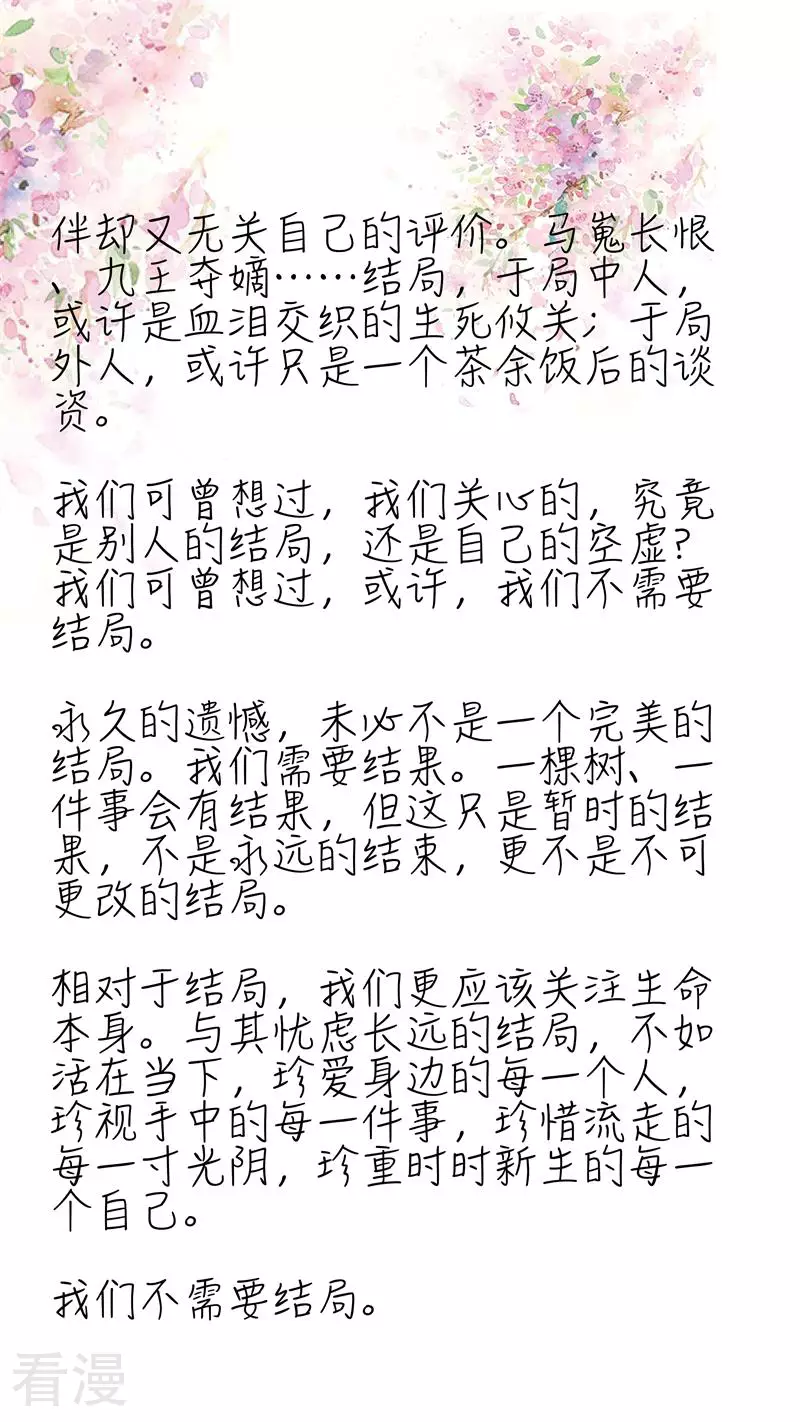 伴却又无关自己的评价。马嵬长恨
、九王夺嫡……结局，于局中人，
或许是血泪交织的生死攸关；于局
外人，或许只是一个茶余饭后的谈
资。
我们可曾想过，我们关心的，究竟
是别人的结局，还是自己的空虚？
我们可曾想过，或许，我们不需要
结局。
永久的遗憾，未必不是一个完美的
结局。我们需要结果。一棵树、一
件事会有结果，但这只是暂时的结
果，不是永远的结束，更不是不可
更改的结局。
相对于结局，我们更应该关注生命
本身。与其忧虑长远的结局，不如
活在当下，珍爱身边的每一个人，
珍视手中的每一件事，珍惜流走的
每一寸光阴，珍重时时新生的每一
个自己。
我们不需要结局。
看漫